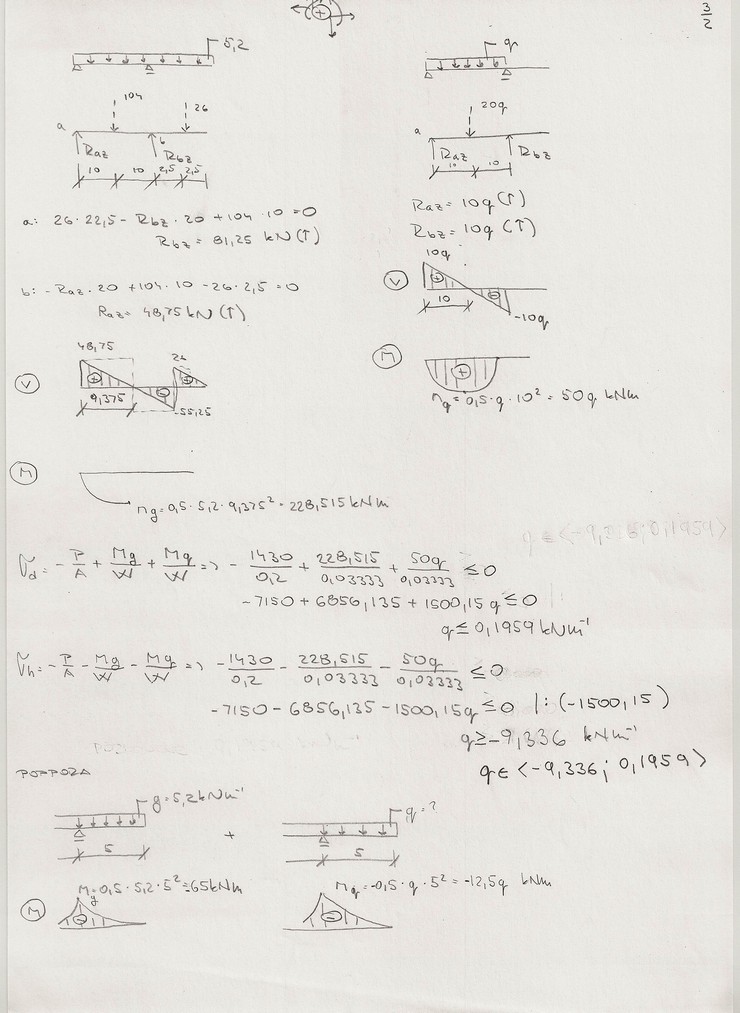 3/2
5,2
104
26
a
b
Raz
Rbz
10 10 2,5 2,5
a: 26·22,5 - Rbz·20 + 104·10 = 0
Rbz = 81,25 kN (↑)
b: -Raz·20 + 104·10 - 26·2,5 = 0
Raz = 48,75 kN (↑)
48,75
26
V
⊕ ⊖ ⊕
9,375
-55,25
q
20q
a
Raz
Rbz
10 10
Raz = 10q (↑)
Rbz = 10q (↑)
10q
V
⊕ ⊖
10
-10q
M
⊕
Mq = 0,5·q·10² = 50q kNm
M
Mg = 0,5·5,2·9,375² = 228,515 kNm
σd = -P/A + Mg/W + Mq/W => -1430/0,2 + 228,515/0,03333 + 50q/0,03333 ≤ 0
-7150 + 6856,135 + 1500,15q ≤ 0
q ≤ 0,1959 kNm⁻¹
σh = -P/A - Mg/W - Mq/W => -1430/0,2 - 228,515/0,03333 - 50q/0,03333 ≤ 0
-7150 - 6856,135 - 1500,15q ≤ 0 |:(-1500,15)
q ≥ -9,336 kNm⁻¹
q ∈ <-9,336; 0,1959>
PODPORA
g = 5,2 kNm⁻¹
+
q = ?
5
5
Mg = 0,5·5,2·5² = 65 kNm
Mq = -0,5·q·5² = -12,5q kNm
M
⊖
⊖